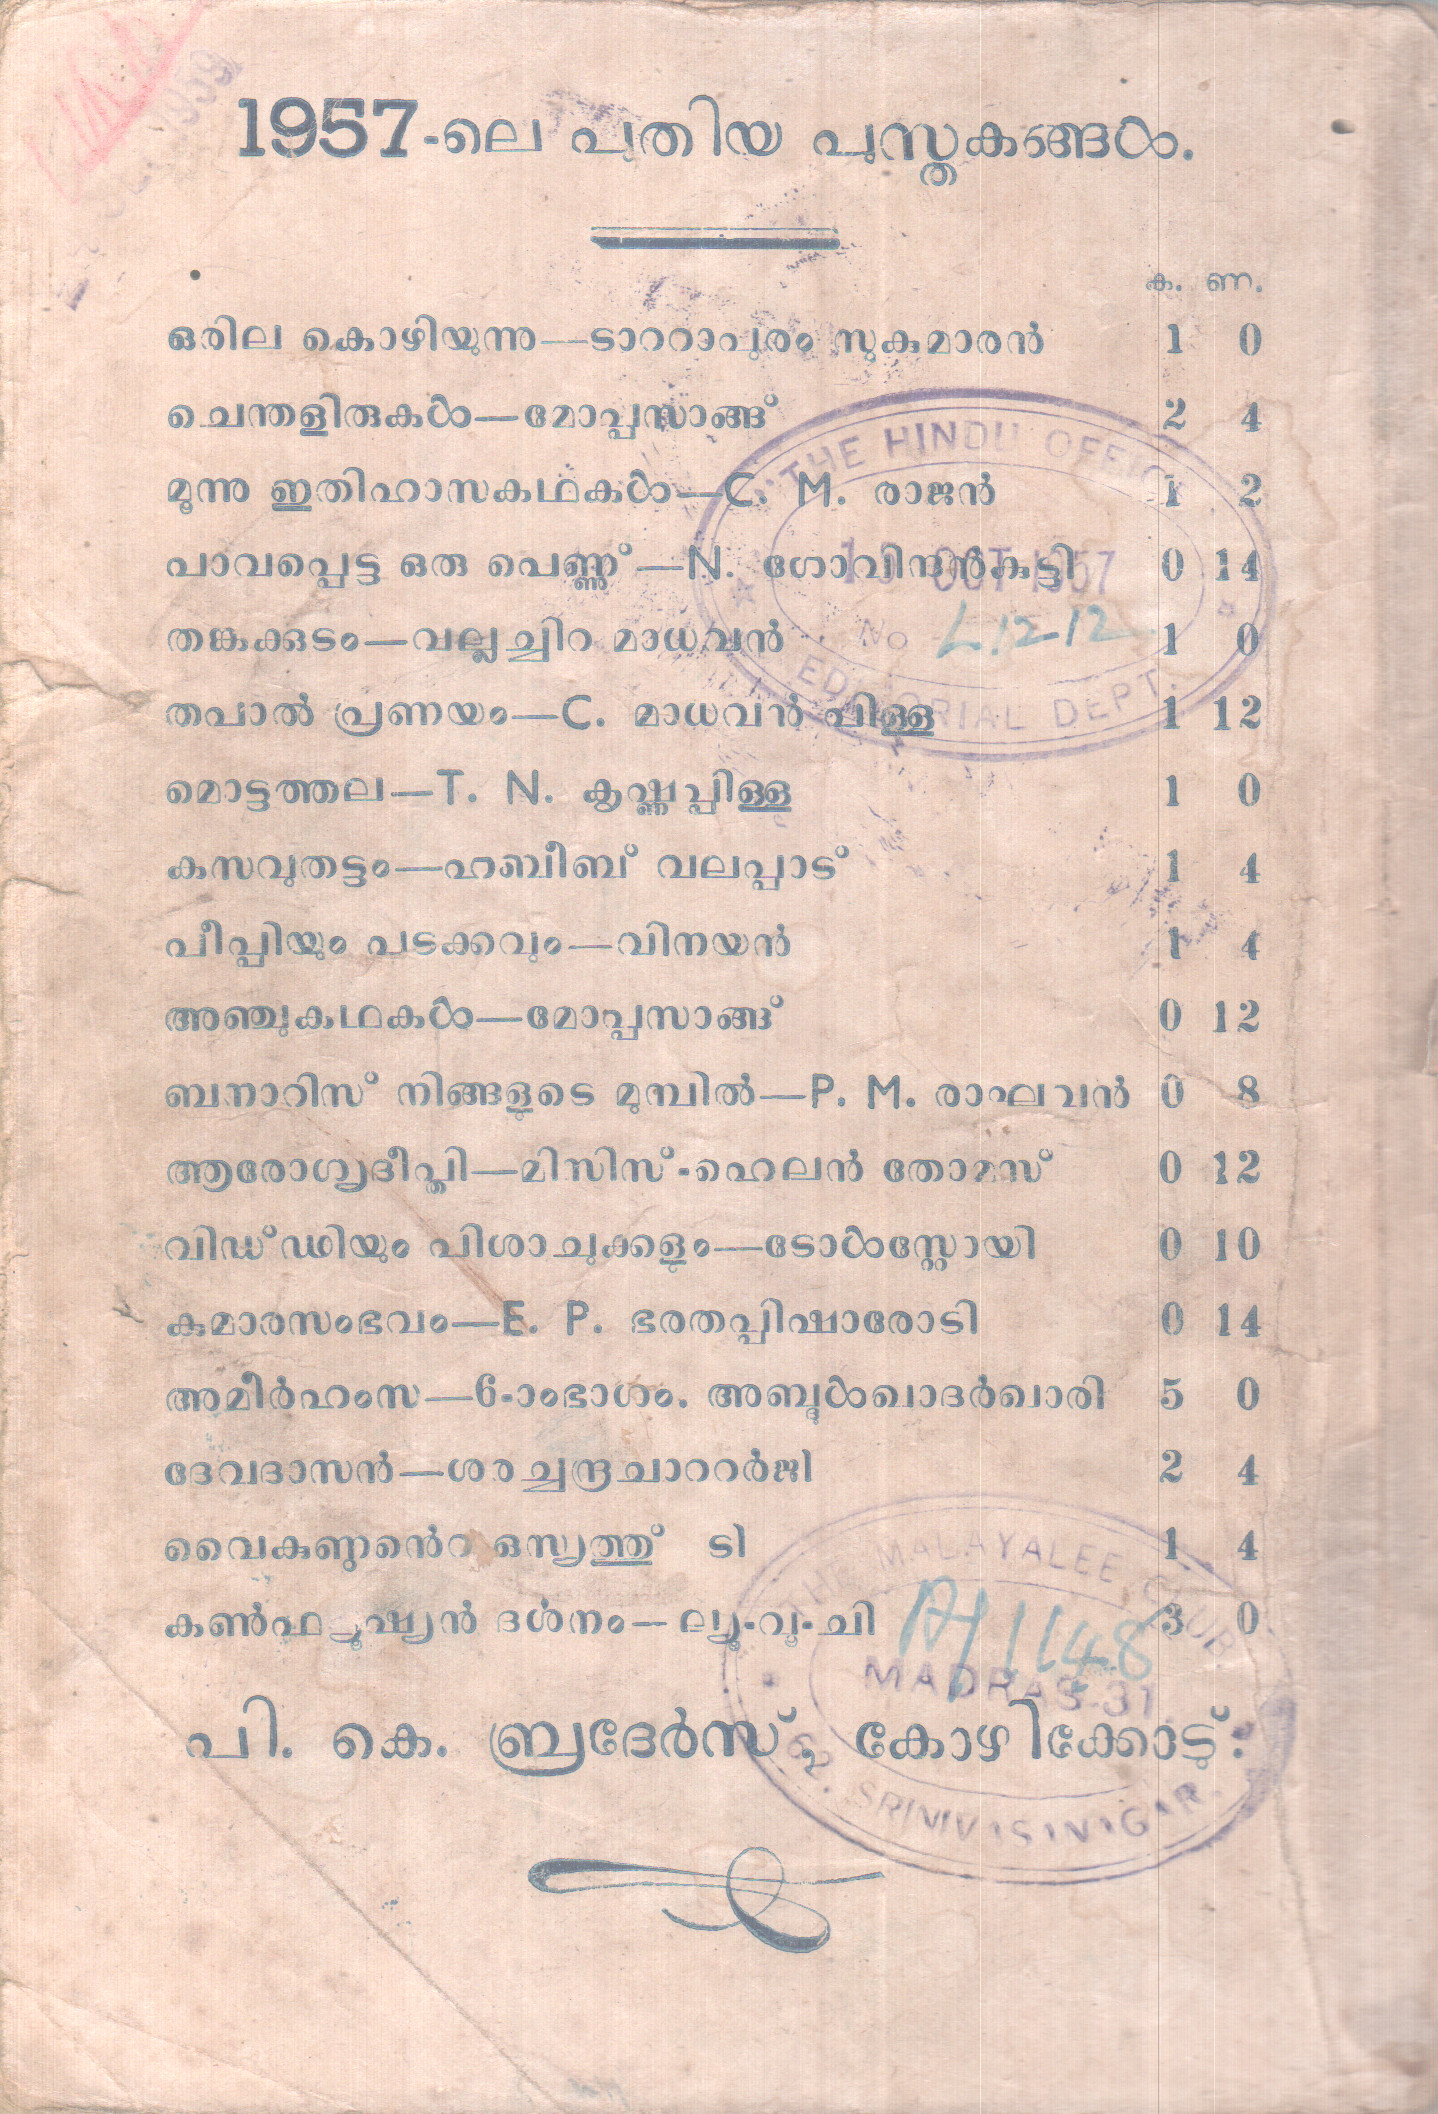 1957-ലെ പുതിയ പുസ്തകങ്ങൾ.
ക. ണ.
ഒരില കൊഴിയുന്നു—ടാററാപുരം സുകുമാരൻ 1 0
ചെന്തളിരുകൾ—മോപ്പസാങ്ങ് 2 4
മൂന്നു ഇതിഹാസകഥകൾ—C. M. രാജൻ 1 2
പാവപ്പെട്ട ഒരു പെണ്ണ്—N. ഗോവിന്ദൻകുട്ടി 0 14
തങ്കക്കുടം—വല്ലച്ചിറ മാധവൻ 1 0
തപാൽ പ്രണയം—C. മാധവൻ പിള്ള 1 12
മൊട്ടത്തല—T. N. കൃഷ്ണപ്പിള്ള 1 0
കസവുതട്ടം—ഹബീബ് വലപ്പാട് 1 4
പീപ്പിയും പടക്കവും—വിനയൻ 1 4
അഞ്ചുകഥകൾ—മോപ്പസാങ്ങ് 0 12
ബനാറിസ് നിങ്ങളുടെ മുമ്പിൽ—P. M. രാഘവൻ 0 8
ആരോഗ്യദീപ്തി—മിസിസ്-ഹെലൻ തോമസ് 0 12
വിഡ്ഢിയും പിശാചുക്കളും—ടോൾസ്റ്റോയി 0 10
കുമാരസംഭവം—E. P. ഭരതപ്പിഷാരോടി 0 14
അമീർഹംസ—6-ാംഭാഗം. അബ്ദുൾഖാദർഖാരി 5 0
ദേവദാസൻ—ശരച്ചന്ദ്രചാററർജി 2 4
വൈകുണ്ഠൻെറ ഒസ്യത്ത് ടി 1 4
കൺഫ്യൂഷ്യൻ ദർശനം—ല്യൂ-വൂ-ചി 3 0
പി. കെ. ബ്രദേർസ്, കോഴിക്കോട്.
THE HINDU OFFICE
OCT 1957
No L.1212
EDITORIAL DEPT.
THE MALAYALEE CLUB.
A/1148
MADRAS-31
62, SRINIVASANAGAR.